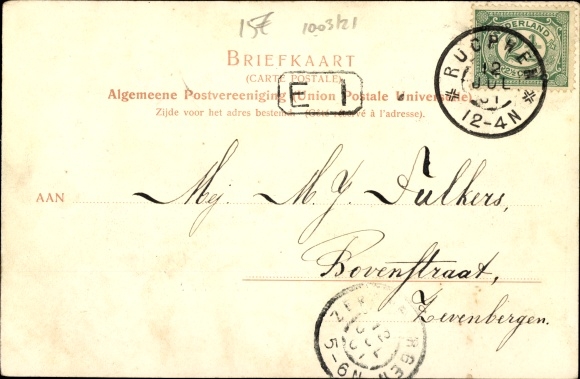 15€ 1003/21
BRIEFKAART
(CARTE POSTALE)
Algemeene Postvereeniging (Union Postale Universelle)
Zijde voor het adres bestemd (Côté réservé à l'adresse).
E I
NEDERLAND
RUCPHEN
12
JUL
01
12-4N
AAN Mej. M. J. Dulkers,
Bovenstraat,
Zevenbergen.
5-6N